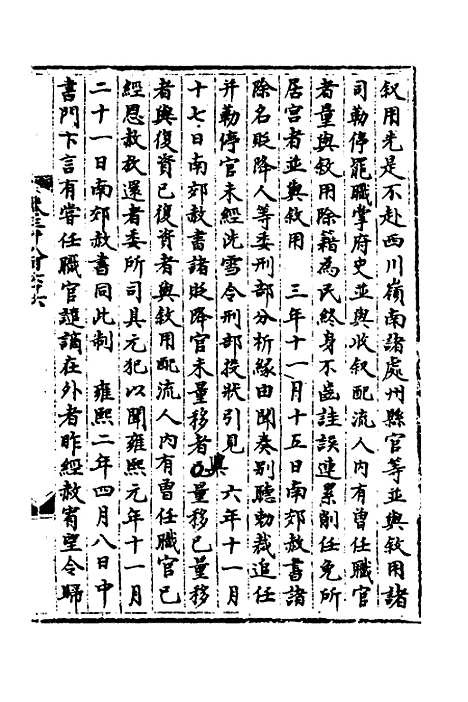 叙用先是不赴西川嶺南諸處州縣官等並與敘用諸
司勒停罷職掌府史並與收叙配流人内有曾任職官
者量與敘用除籍為民終身不齒詿誤連累削任免所
居官者並與敘用　三年十一月十五日南郊赦書諸
除名貶降人等委刑部分析緣由聞奏别聽勅裁追任
并勒停官未經洗雪令刑部投狀引見　六年十一月
十七日南郊赦書諸貶降官未量移者與量移已量移
者與復資已復資者與敘用配流人内有曾任職官已
經恩赦放還者委所司具元犯以聞雍熙元年十一月
二十一日南郊赦書同此制　雍熙二年四月八日中
書門下言有嘗任職官譴謫在外者昨經赦宥望令歸